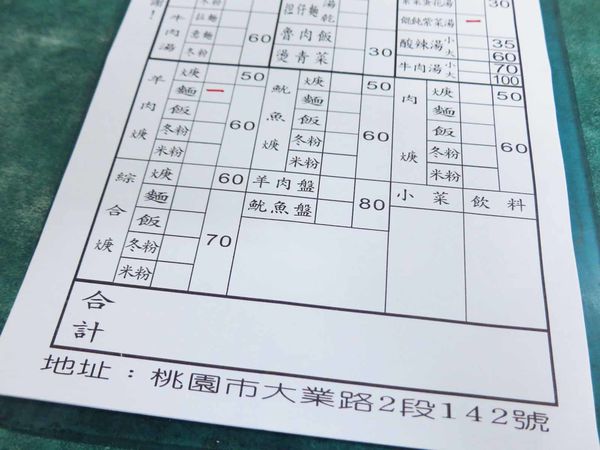 謝！
牛肉湯
拉麵
意麵
冬粉
60
担仔麵
湯
乾
魯肉飯
燙青菜
30
紫菜蛋花湯 30
餛飩紫菜湯 一
酸辣湯 小 35
大 60
牛肉湯 小 70
大 100
羊肉焿
焿 50
麵 一
飯
冬粉
米粉
60
魷魚焿
焿 50
麵
飯
冬粉
米粉
60
肉焿
焿 50
麵
飯
冬粉
米粉
60
綜合焿
焿 60
麵
飯
冬粉
米粉
70
羊肉盤
魷魚盤
80
小菜 飲料
合計
地址：桃園市大業路2段142號